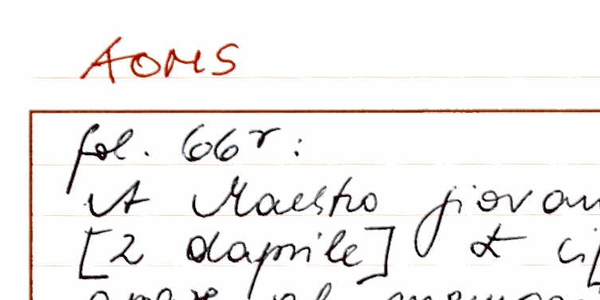 AOMS
fol. 66r:
A Maestro giovan
[2 daprile] et ci